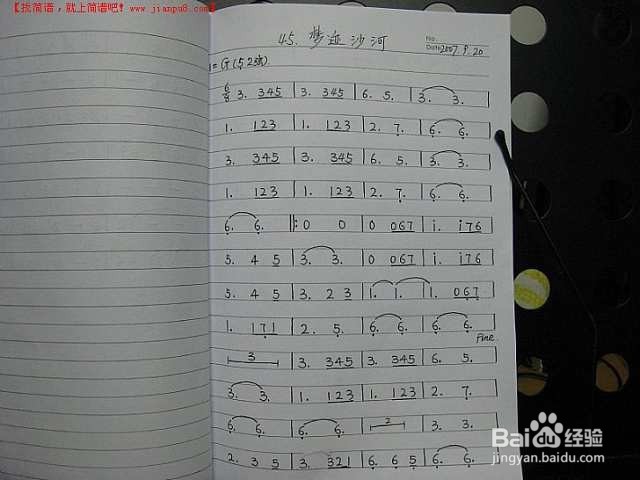 【找简谱，就上简谱吧！www.jianpu8.com】
45. 梦迹沙河
No.
Date 2007. 9. 20
1= G (5̣ 2弦)
6/8 3. 345 | 3. 345 | 6. 5. | 3. 3. |
1. 123 | 1. 123 | 2. 7̣. | 6̣. 6̣. |
3. 345 | 3. 345 | 6. 5. | 3. 3. |
1. 123 | 1. 123 | 2. 7̣. | 6̣. 6̣. |
6̣. 6̣. ‖: 0 0 | 0 067 | i. i76 |
5. 4 5 | 3. 3. | 0 067 | i. i76 |
5. 4 5 | 3. 2 3 | 1. 1. | 1. 06̣7̣ |
1. 17̣1 | 2. 5̣. | 6̣. 6̣. | 6̣. 6̣. |
Fine
3 | 3. 345 | 3. 345 | 6. 5. |
3. 3. | 1. 123 | 1. 123 | 2. 7̣. |
6̣. 6̣. | 6̣. 6̣. | 2 | 3. 3. |
2. 3 5 | 3. 321 | 6̣. 6̣ 5̣ | 6̣. 6̣. |
Baidu经验
jingyan.baidu.com